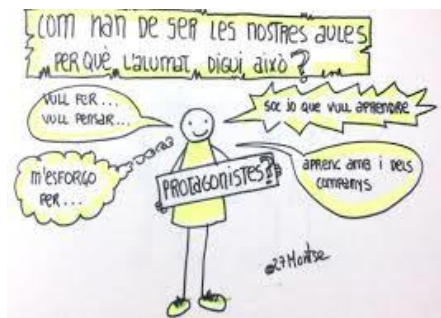 COM HAN DE SER LES NOSTRES AULES
PER QUÈ L'ALUMNAT DIGUI AIXÒ?
VULL FER...
VULL PENSAR...
SOC JO QUE VULL APRENDRE
M'ESFORÇO
PER...
PROTAGONISTES?
APRENC AMB I DELS
COMPANYS
@27Montse